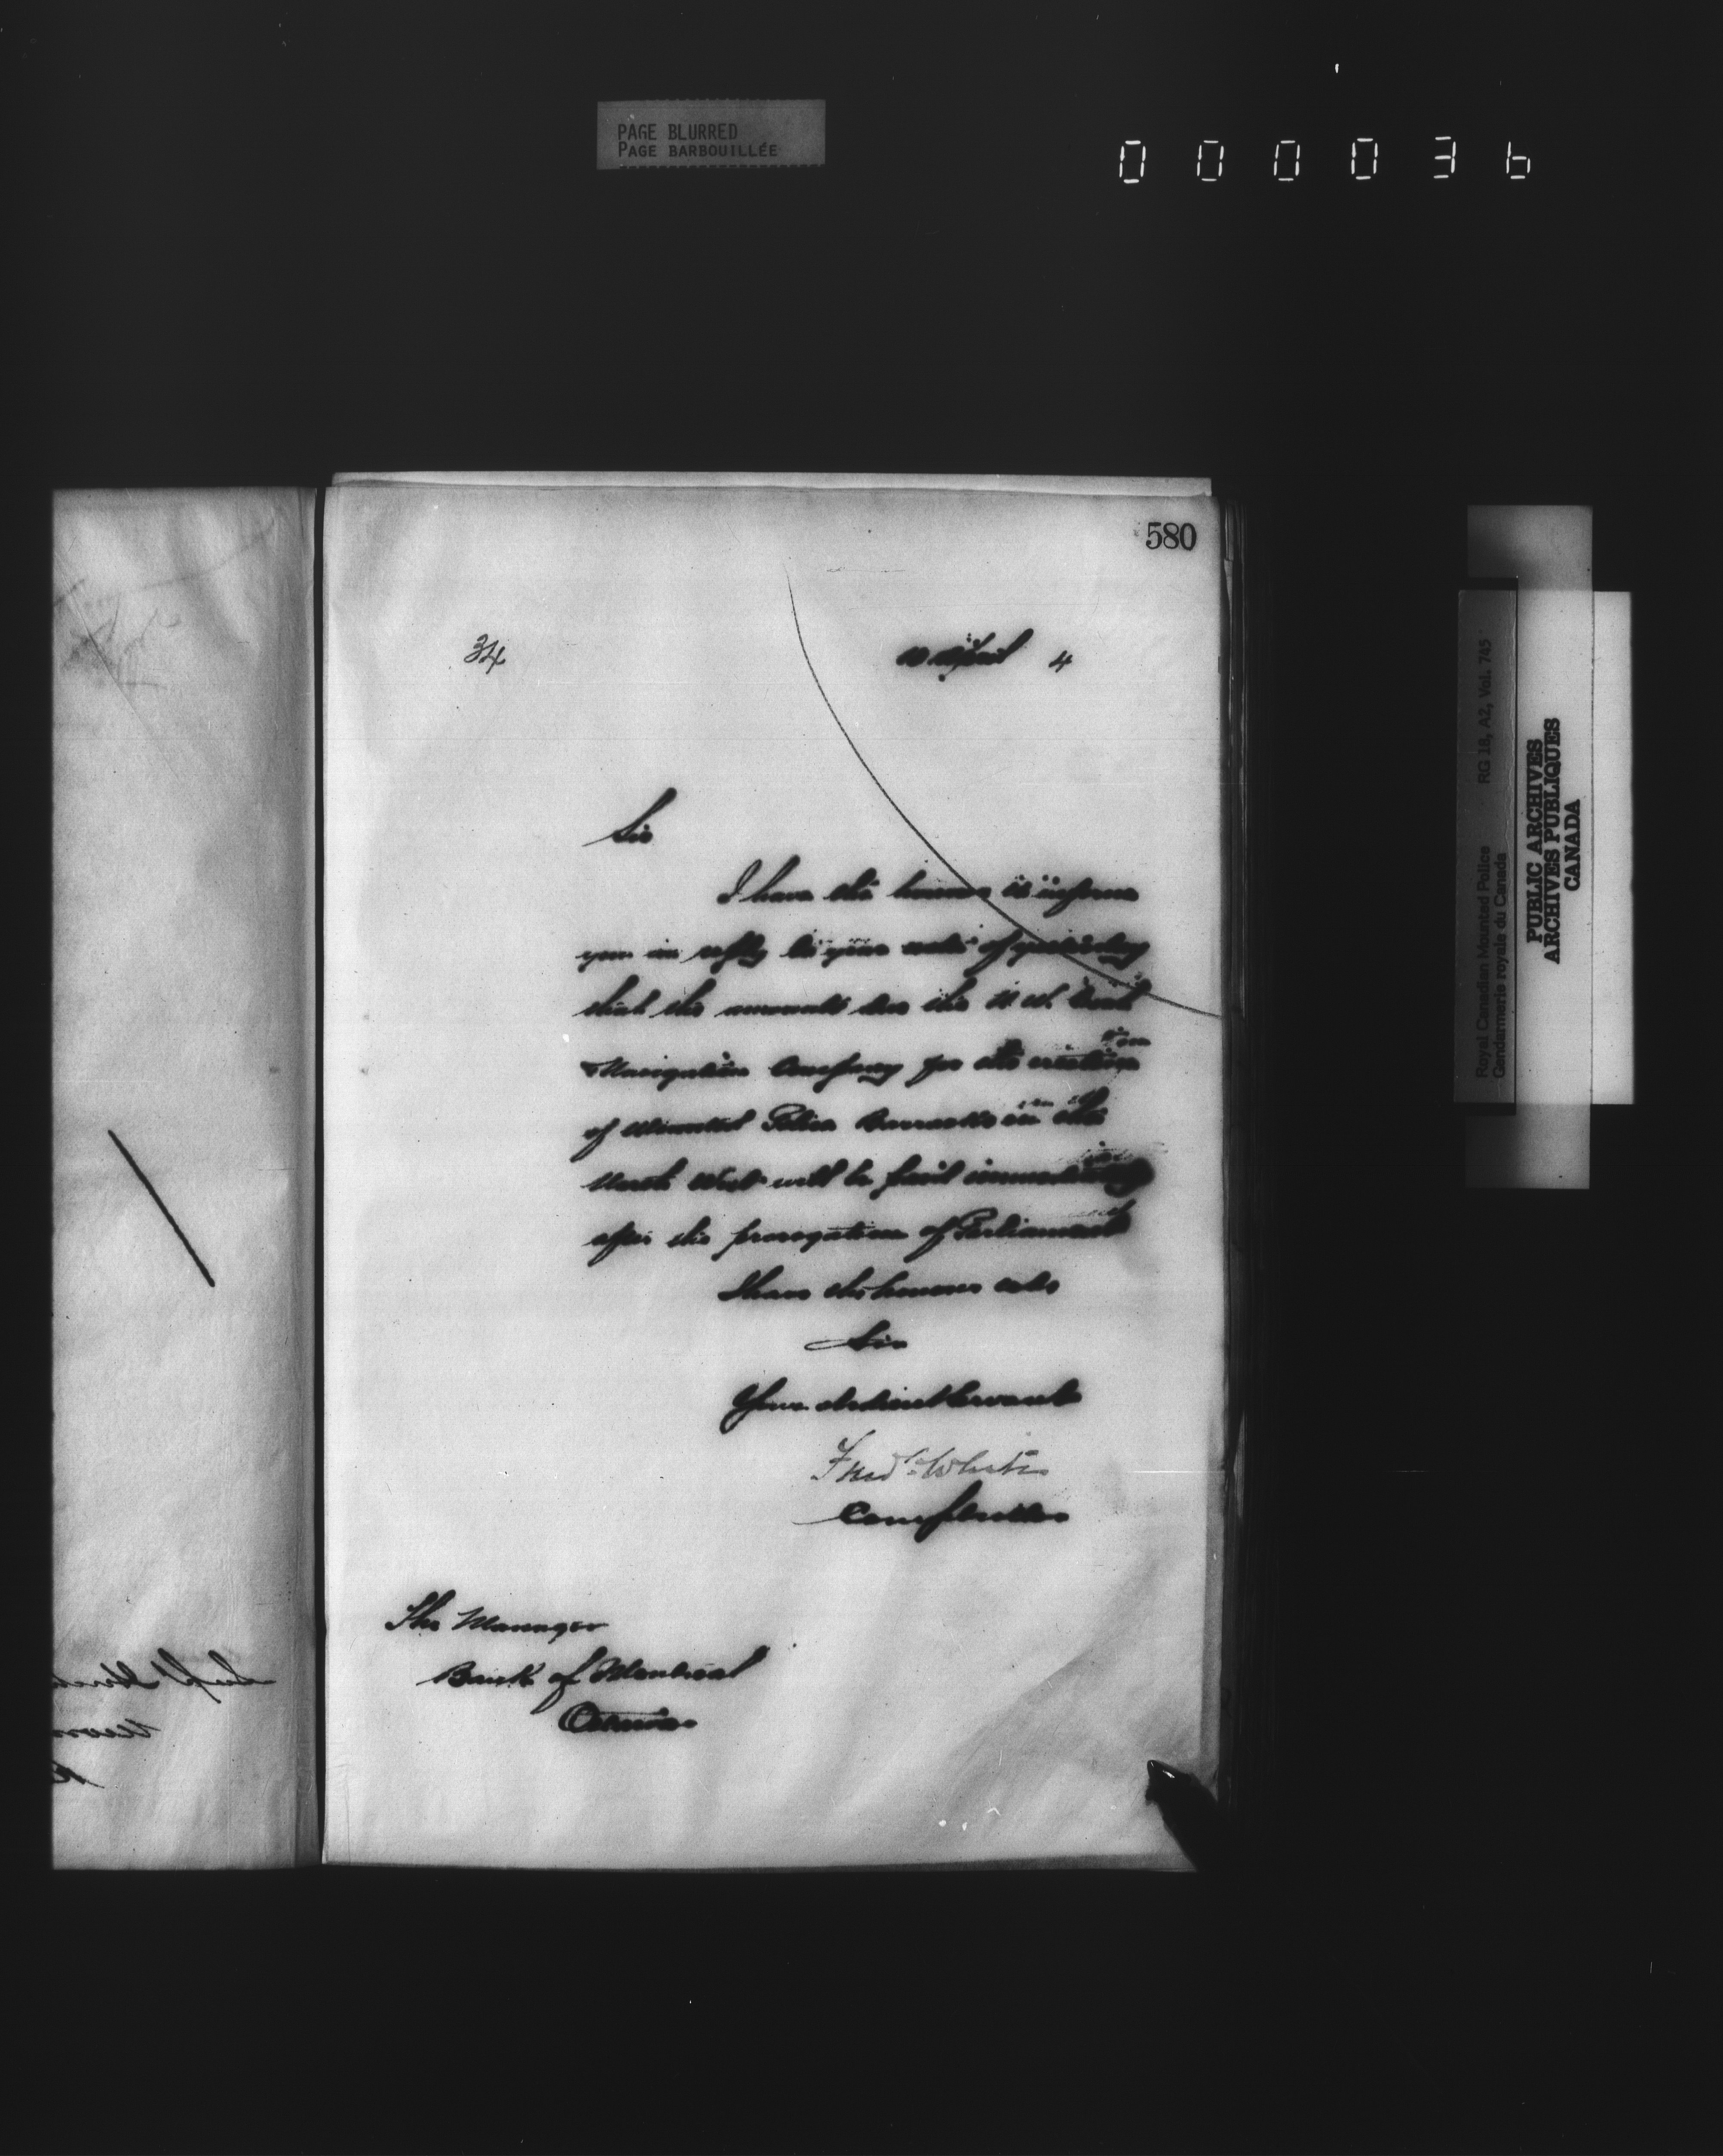 PAGE BLURRED
PAGE BARBOUILLÉE
000036
580
34
10 April 4
Sir
I have the honour to inform
you in reply to your note of yesterday
that the amounts due the N. W. Coal
Navigation Company for the erection
of Mounted Police Barracks in the
North West will be paid immediately
after the prorogation of Parliament
I have the honour to be
Sir
Your obedient Servant
Fred White
Comptroller
The Manager
Bank of Montreal
Ottawa
Royal Canadian Mounted Police RG 18, A2, Vol. 745
Gendarmerie royale du Canada
PUBLIC ARCHIVES
ARCHIVES PUBLIQUES
CANADA